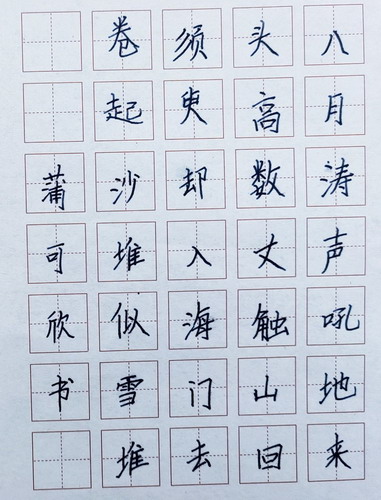 八月涛声吼地来
头高数丈触山回
须臾却入海门去
卷起沙堆似雪堆
蒲可欣书